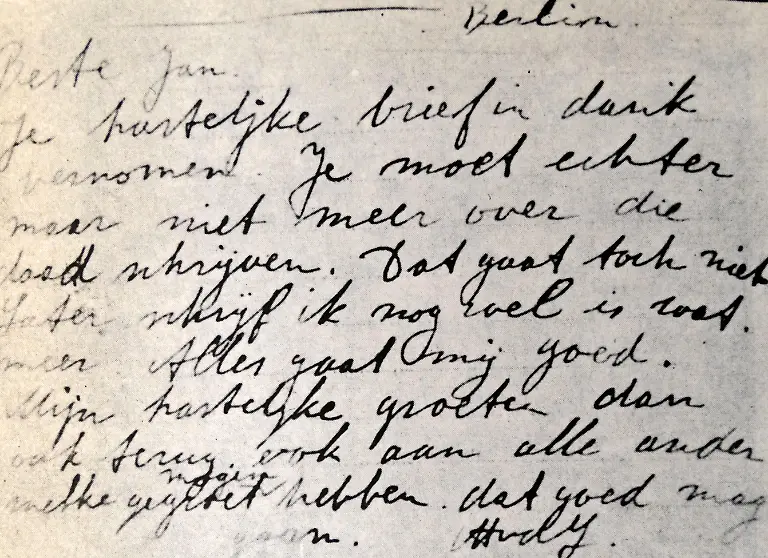 Berlin.
Beste Jan.
Je hartelijke brief in dank
vernomen. Je moet echter
maar niet meer over die
daad schrijven. Dat gaat toch niet
Later schrijf ik nog wel is wat.
meer Alles gaat mij goed.
Mijn hartelijke groeten dan
ook terug ook aan alle ander
mogen
welke gegroet hebben. dat goed mag
gaan.